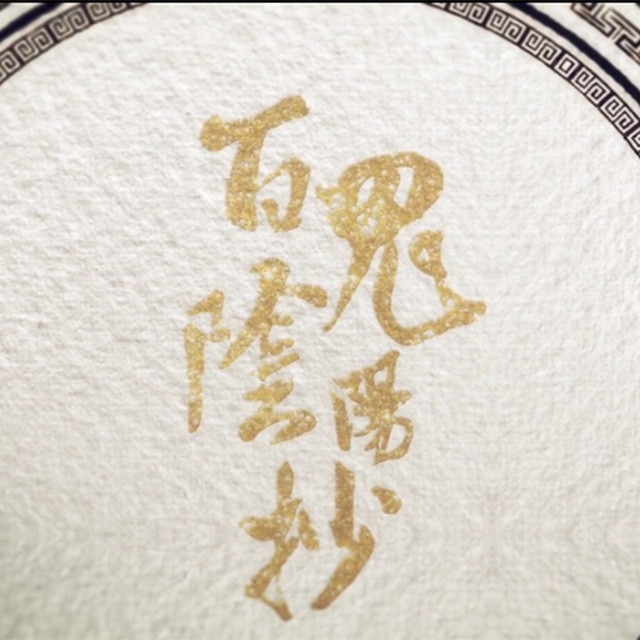 百鬼
陰陽
抄